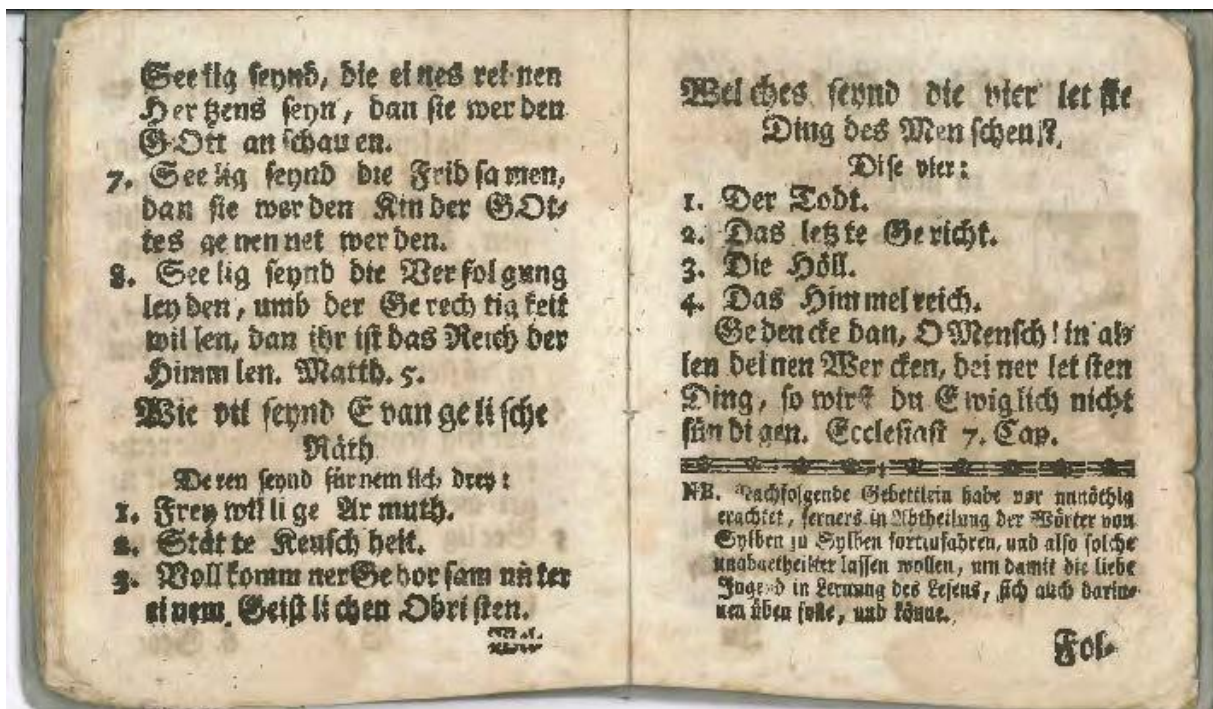 Seelig seynd, die ei nes rei nen
Her tzens seyn, dan sie wer den
GOtt an schau en.
7. See lig seynd die Frid sa men,
dan sie wer den Kin der GOt-
tes ge nen net wer den.
8. See lig seynd die Ver fol gung
ley den, umb der Ge rech tig keit
wil len, dan ihr ist das Reich der
Himm len. Matth. 5.
Wie vil seynd E van ge li sche
Räth
De ren seynd für nem lich drey:
1. Frey wil li ge Ar muth.
2. Stät te Keusch heit.
3. Voll komm ner Ge hor sam un ter
ei nem Geist li chen Obri sten.
Wel ches seynd die vier let ste
Ding des Men schen?
Dise vier:
1. Der Todt.
2. Das letz te Ge richt.
3. Die Höll.
4. Das Him mel reich.
Ge den cke dan, O Mensch! in al-
len dei nen Wer cken, dei ner let sten
Ding, so wirst du E wig lich nicht
sün di gen. Ecclesiast 7. Cap.
NB. Nachfolgende Gebettlein habe vor unnöthig
erachtet, ferners in Abtheilung der Wörter von
Sylben zu Sylben fortzufahren, und also solche
unabgetheilter lassen wollen, um damit die liebe
Jugend in Lernung des Lesens, sich auch darin-
nen üben solle, und könne.
Fol-